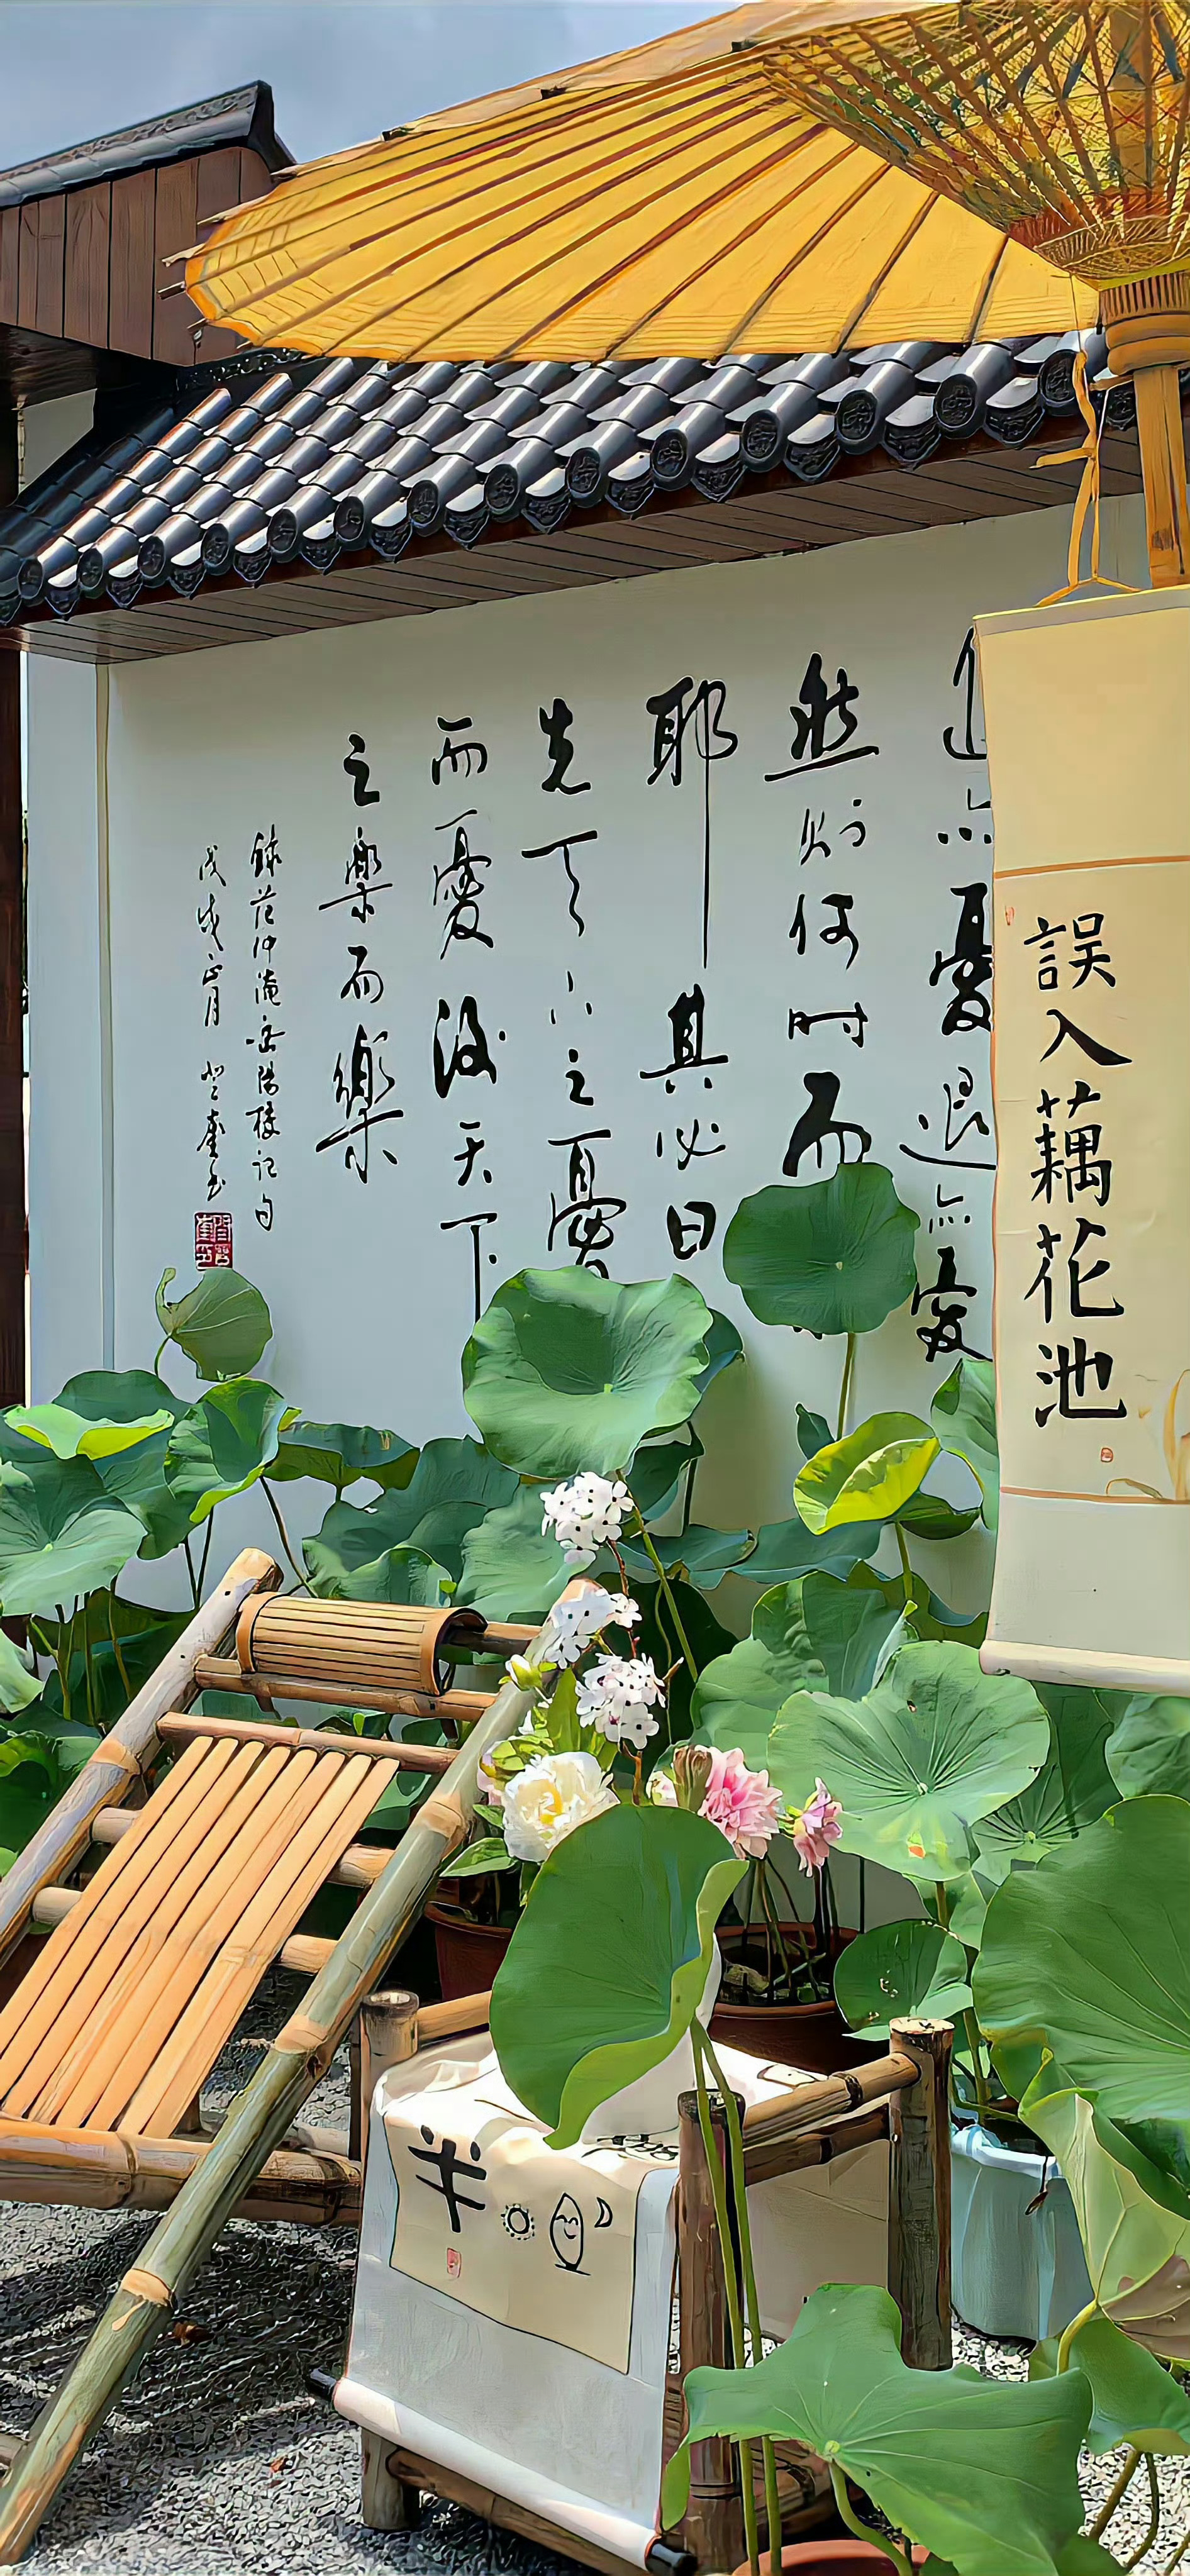 誤入藕花池
進亦憂退亦憂
然则何时而
耶其必曰
先天下之憂
而憂後天下
之樂而樂
錄范仲淹岳陽樓記句
戊戌正月
半